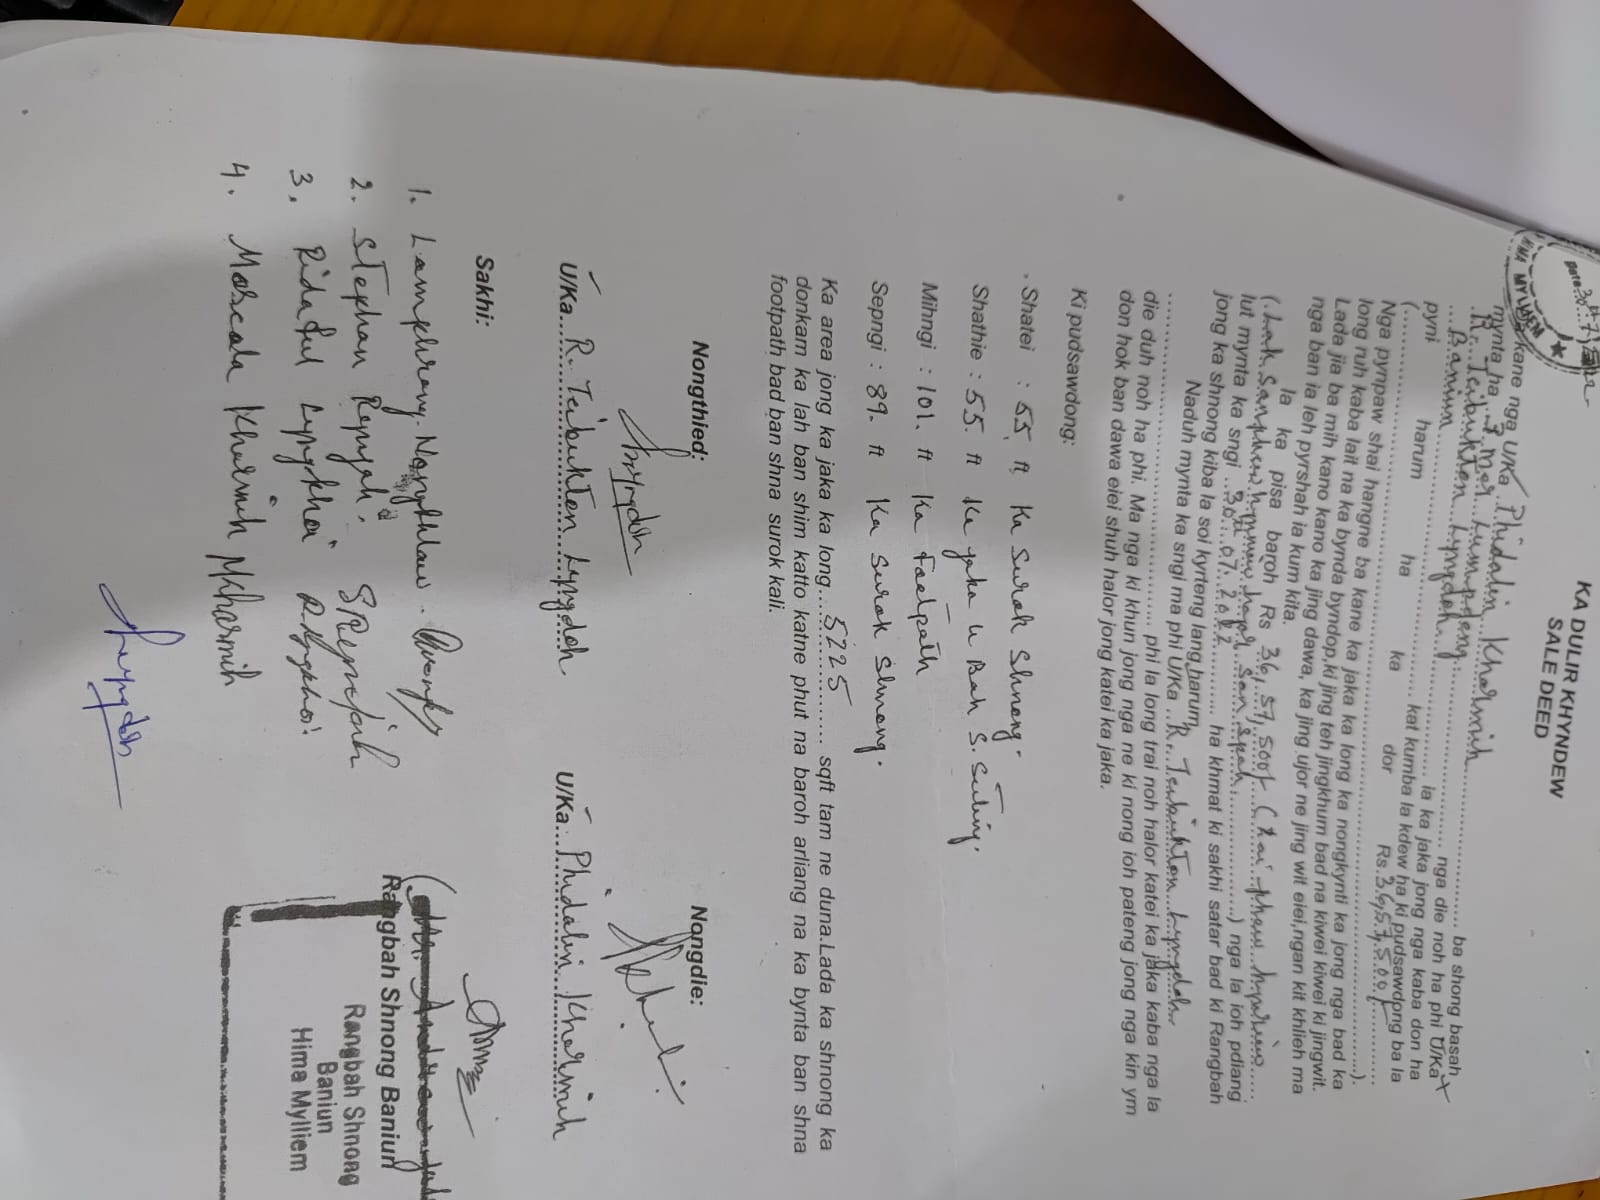 Date:30/7/2022
HIMA MYLLIEM
KA DULIR KHYNDEW
SALE DEED
kane nga U/Ka Phidalin Kharmih ba shong basah
mynta ha 7 mer Lumpdeng nga die noh ha phi U/Ka
R. Teibukton Lyngdoh ia ka jaka jong nga kaba don ha
Baniun kat kumba la kdew ha ki pudsawdong ba la
pyni harum ha ka dor Rs.36,57,500/-
(..........).
Nga pynpaw shai hangne ba kane ka jaka ka long ka nongkynti ka jong nga bad ka
long ruh kaba lait na ka bynda byndop,ki jing teh jingkhum bad na kiwei kiwei ki jingwit.
Lada jia ba mih kano kano ka jing dawa, ka jing ujor ne jing wit eiei,ngan kit khlieh ma
nga ban ia leh pyrshah ia kum kita.
la ka pisa baroh Rs 36,57,500/- (Lai phew hynriew
Lak sanphew hynniew hajar san spah) nga la ioh pdiang
lut mynta ka sngi 30.07.2022 ha khmat ki sakhi satar bad ki Rangbah
jong ka shnong kiba la soi kyrteng lang harum
Naduh mynta ka sngi ma phi U/Ka R. Teibukton Lyngdoh
.......... phi la long trai noh halor katei ka jaka kaba nga la
die duh noh ha phi. Ma nga ki khun jong nga ne ki nong ioh pateng jong nga kin ym
don hok ban dawa eiei shuh halor jong katei ka jaka.
Ki pudsawdong:
Shatei : 55 ft Ka Surok Shnong.
Shathie : 55 ft Ka jaka u Bah S. Suting.
Mihngi : 101. ft Ka Footpath
Sepngi : 89. ft Ka Surok Shnong.
Ka area jong ka jaka ka long 5225 sqft tam ne duna.Lada ka shnong ka
donkam ka lah ban shim katto katne phut na baroh arliang na ka bynta ban shna
footpath bad ban shna surok kali.
Nongthied: Nongdie:
U/Ka R. Teibukton Lyngdoh U/Ka Phidalin Kharmih
Sakhi:
1. Lamphrang Nongkhlaw.
2. Stephan Rynjah. SRynjah
3. Ridaful Lyngkhoi RLyngkhoi
4. Mascala Kharmih MKharmih
Rangbah Shnong Baniun
Rangbah Shnong
Baniun
Hima Mylliem